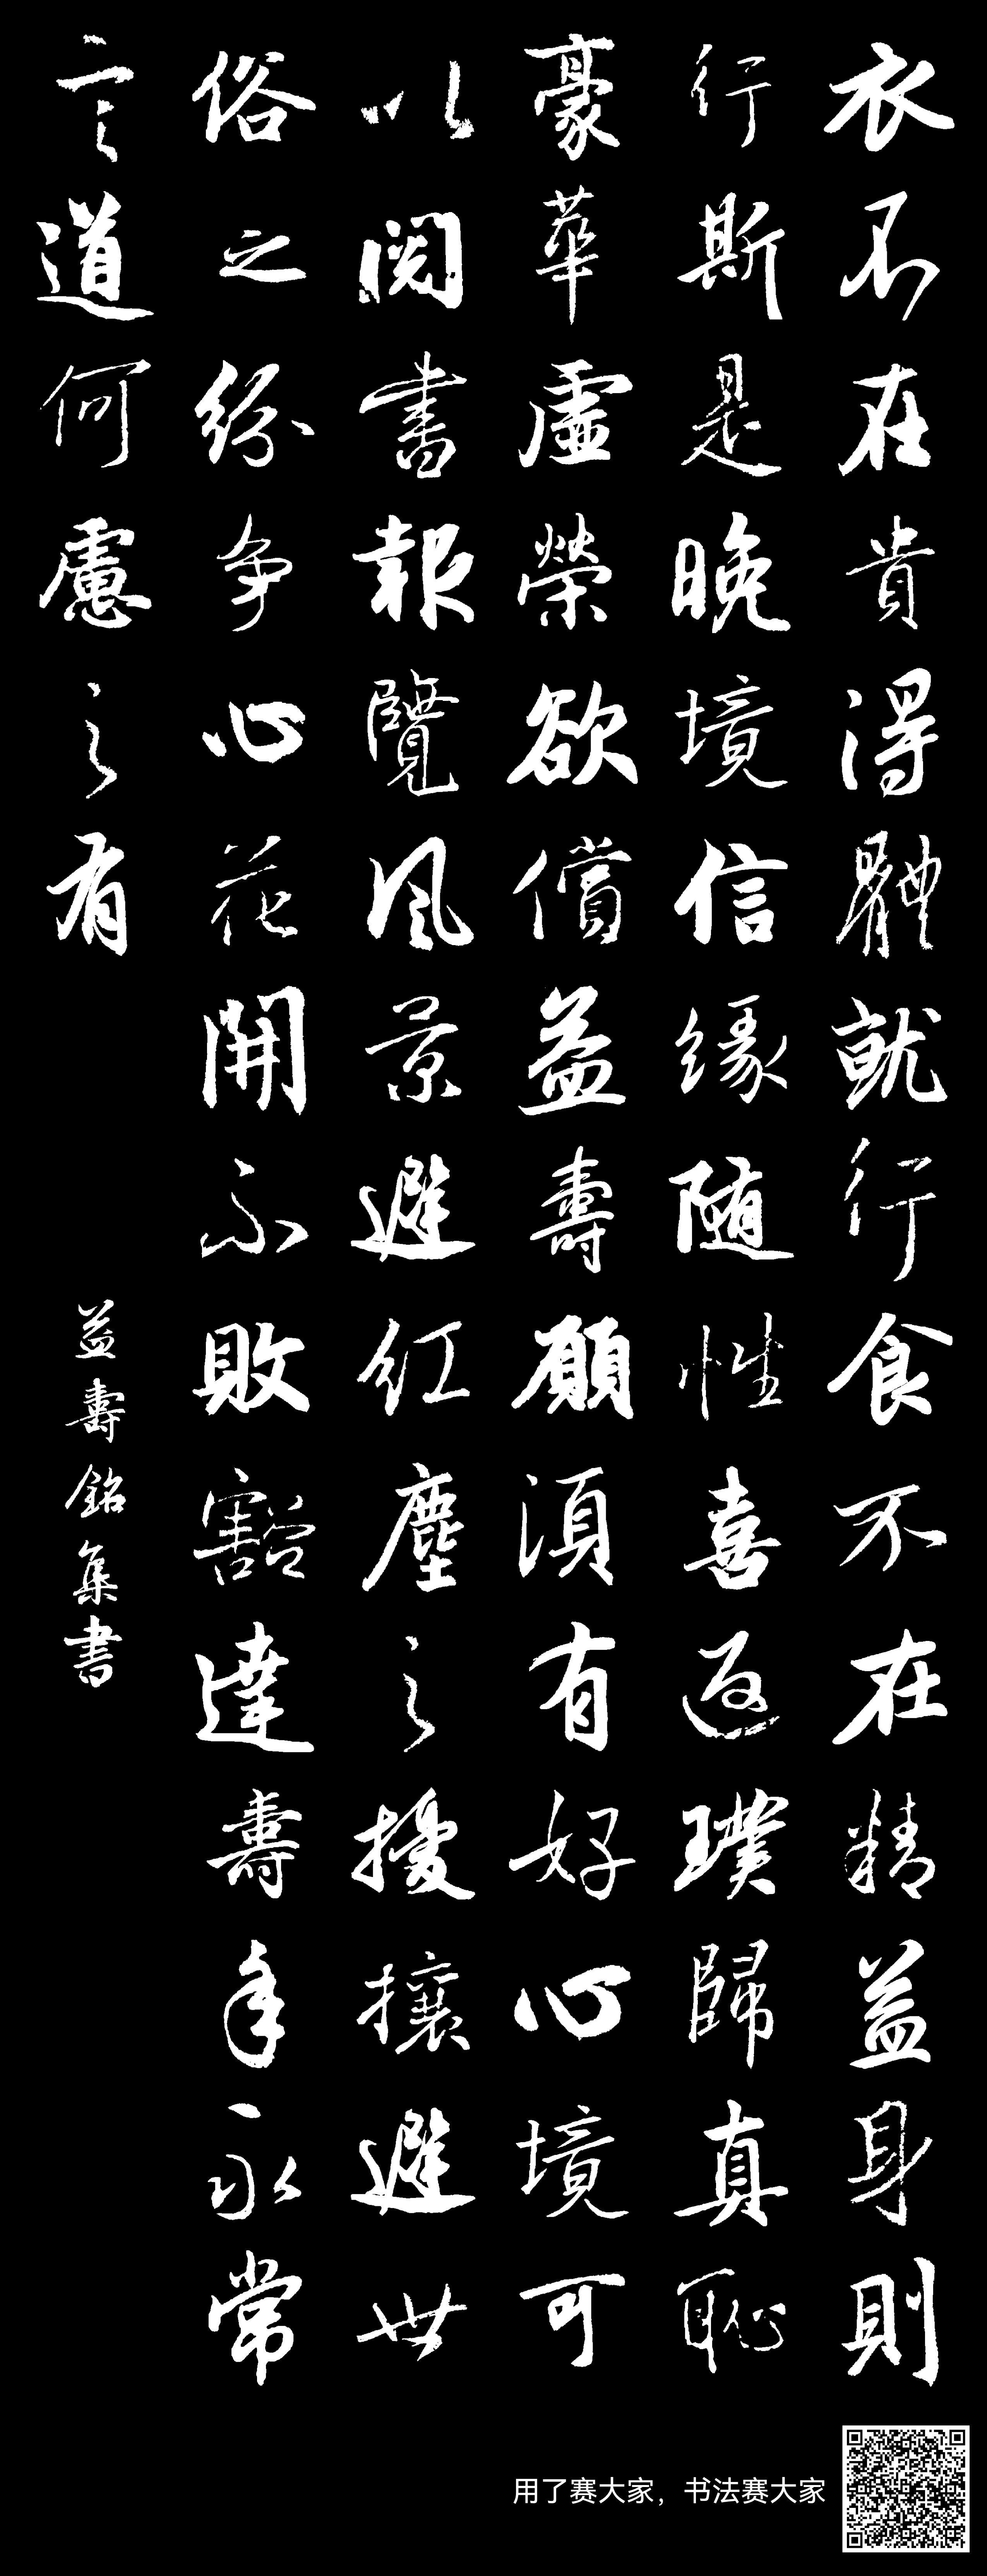 衣不在貴得體就行食不在精益身則
行斯是晚境信缘随性喜返璞歸真恥
豪華虛榮欲償益壽願須有好心境可
以閱書報覽風景避紅塵之擾攘避世
俗之紛争心花開不敗豁達壽年永常
言道何慮之有
益壽銘集書
用了赛大家，书法赛大家